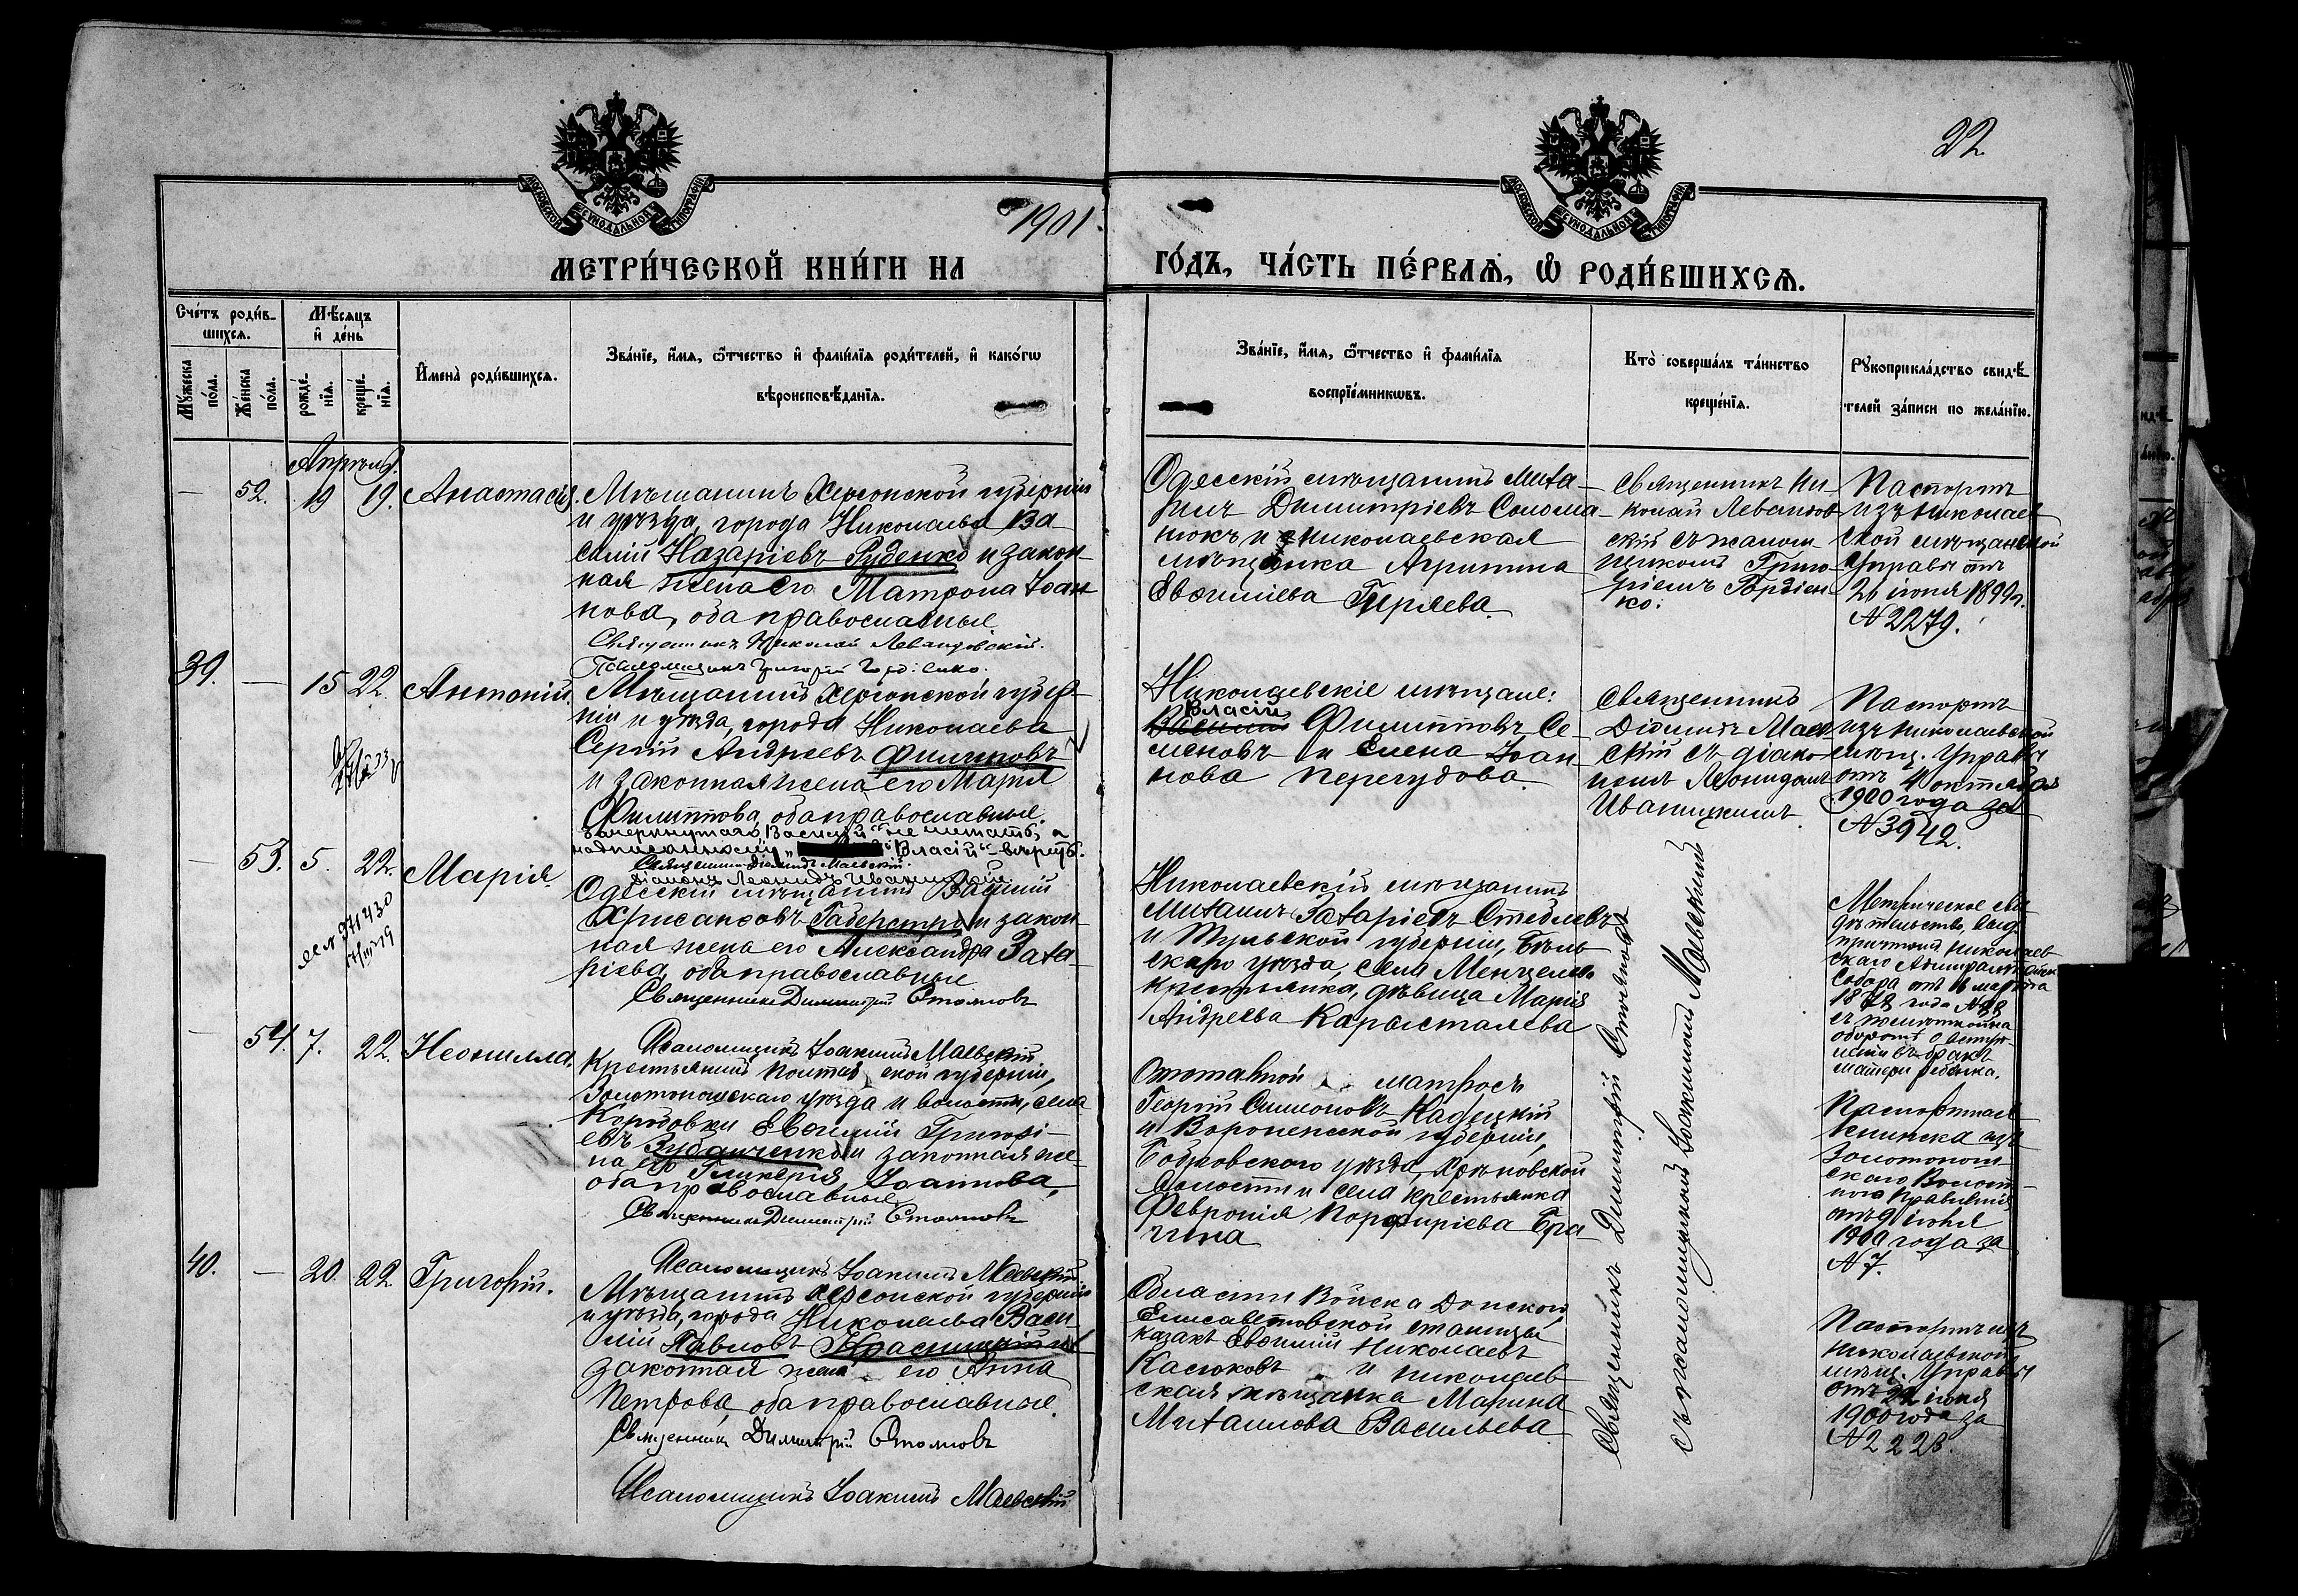 22
1901
МЕТРИ́ЧЕСКОЙ КНИ́ГИ НА
ГО́ДЪ, ЧА́СТЬ ПЕ́РВАѦ, Ѿ РОДИ́ВШИХСѦ.
Сче́тъ роди́в-
шихсѧ.
Мѣ́сѧцъ
и҆ де́нь
Мꙋ́жеска
по́ла.
Же́нска
по́ла.
рожде́-
нїѧ.
креще́-
нїѧ.
И҆мена̀ роди́вшихсѧ.
Зва́нїе, и҆́мѧ, ѻ҆́тчество и҆ фами́лїѧ роди́телей, и҆ како́гѡ
вѣроисповѣ́данїѧ.
Зва́нїе, и҆́мѧ, ѻ҆́тчество и҆ фами́лїѧ
воспрїе́мникѡвъ.
Кто̀ соверша́лъ та́инство
креще́нїѧ.
Рꙋкоприкла́дство свидѣ́-
телей за́писи по жела́нїю.
Апрѣль.
— 52. 19 19. Анастасія.
Мѣщанинъ Херсонской губерніи
и уѣзда, города Николаева Ва-
силій Назаріевъ Руденко и закон-
ная жена его Матрона Іоан-
нова, оба православные
Священникъ Николай Левандовскій.
Псаломщикъ Григорій Гордіенко.
Одесскій мѣщанинъ Миха-
илъ Димитріевъ Солома-
нюкъ и Николаевская
мѣщанка Агрипина
Евѳиміева Гиряева.
Священникъ Ни-
колай Левандов-
скій съ псалом-
щикомъ Григо-
ріемъ Гордіен-
ко.
Паспортъ
изъ Николаев-
ской мѣщанской
Управы отъ
26 іюня 1899 г.
N 2279.
39. — 15 22. Антоній.
Мѣщанинъ Херсонской губер-
ніи и уѣзда, города Николаева
Сергій Андреевъ Филиповъ
и законная жена его Марія
Филиппова, оба православные.
Зачеркнутаго „Василій“ не читать, а
надписанному „Власій“ – вѣрить.
Священникъ Діомидъ Маевскій.
Діаконъ Леонидъ Иваницкій.
Николаевскіе мѣщане:
Власій
Василій Филипповъ Се-
меновъ и Елена Іоан-
нова Перегудова.
Священникъ
Діомидъ Маев-
скій съ діако-
номъ Леонидомъ
Иваницкимъ.
Паспортъ
изъ Николаевской
мѣщ. Управы
отъ 4 октября
1900 года за
N 3942.
— 53. 5. 22. Марія.
Одесскій мѣщанинъ Василій
Хрисанфовъ Габерстро и закон-
ная жена его Александра Заха-
ріева, оба православные
Священникъ Димитрій Стояновъ
Псаломщикъ Іоакимъ Маевскій
Николаевскій мѣщанинъ
Михаилъ Захаріевъ Стеблевъ
и Тульской губерніи, Бѣль-
скаго уѣзда, села
крестьянка, дѣвица Марія
Андреева Карысталева
Метрическое сви-
дѣтельство, выд.
причтомъ Николаев-
скаго Адмиралтейск.
Собора отъ 16 марта
оборотѣ о вступ-
леніи въ бракъ
матери ребенка.
— 54. 7. 22. Неонилла.
Крестьянинъ Полтавской губерніи,
Золотоношскаго уѣзда и волости, села
Коробовки Евѳимій Григорі-
евъ Зубаченко и законная же-
на его Гликерія Іоаннова,
оба православные
Священникъ Димитрій Стояновъ
Псаломщикъ Іоакимъ Маевскій
Отставной матросъ
Георгій Симоновъ Кадецкій
и Воронежской губерніи,
Бобровскаго уѣзда, Хрѣновской
волости и села крестьянка
Февронія Порфиріева Бра-
гина
Паспортная
книжка изъ
Золотонош-
скаго Волост-
ного Правленія
отъ 9 іюня
1900 года за
N 7.
40. — 20. 22. Григорій.
Мѣщанинъ Херсонской губерніи
и уѣзда, города Николаева Васи-
лій Павловъ Красицкій и
законная жена его Анна
Петрова, оба православные.
Священникъ Димитрій Стояновъ
Псаломщикъ Іоакимъ Маевскій
Области Войска Донского,
Елисаветовской станицы
казакъ Евѳимій Николаевъ
Касюковъ и Николаев-
ская мѣщанка Марина
Михаилова Васильева.
Священникъ Димитрій Стояновъ
съ псаломщикомъ Іоакимомъ Маевскимъ
Паспортъ изъ
Николаевской
мѣщ. Управы
отъ 22 іюня
1900 года за
N 2228.